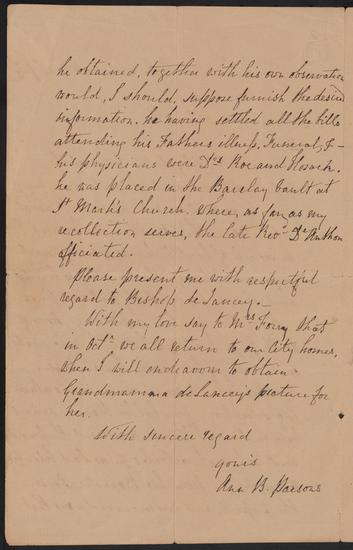 he obtained, together with his own observation
would, I should, suppose furnish the desired
information. he having settled all the bills
attending his Fathers illness, Funeral, &-
his physicians were Drs Roe and Hosack.
he was placed in the Barclay vault at
St Mark's Church. where, as far as my
recollection serves, the late Revd Dr Anthon
officiated.
Please present me with respectful
regard to Bishop de Lancey.-
With my love say to Mrs Forry that
in Octbr we all return to our City homes,
when I will endeavour to obtain
Grandmamma de Lancey's picture for
her.
With sincere regard
yours
Ann B. Parsons